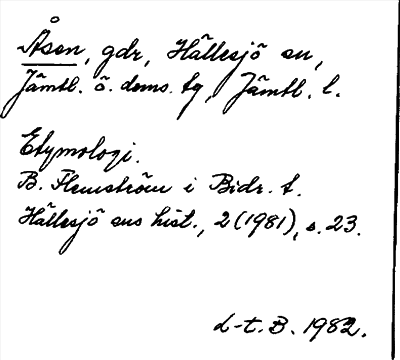 Åsen, gdr, Hällesjö sn,
Jämtl. ö. doms. tg, Jämtl. l.
Etymologi.
B. Flemström i Bidr. t.
Hällesjö sns hist., 2 (1981), s. 23.
L-t. B. 1982.